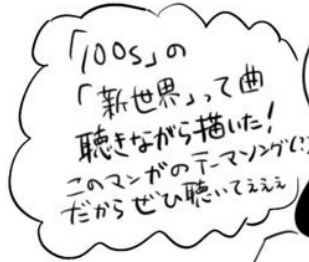 「100s」の
「新世界」って曲
聴きながら描いた!
このマンガのテーマソング(?)
だからぜひ聴いてぇぇぇ